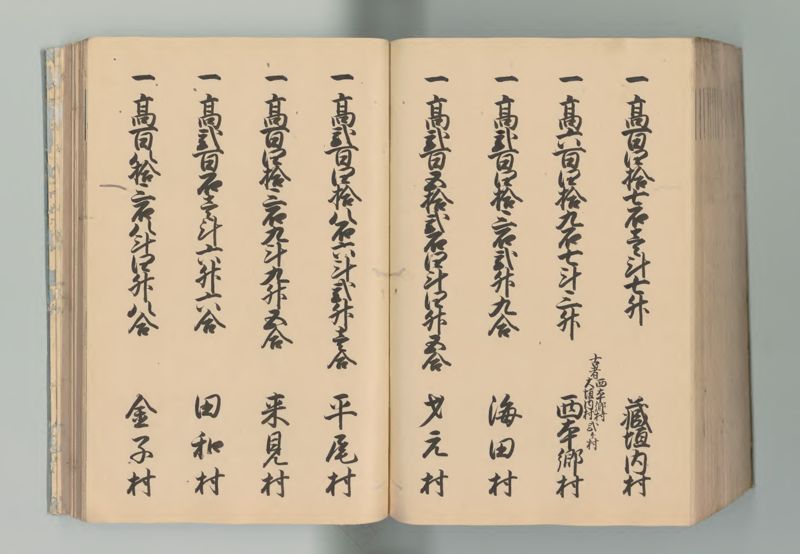 一高百四拾七石壱斗七升 蔵垣内村
一高六百四拾九石七斗三升 西本郷村
古者西本郷村
大垣内村弐ヶ村
一高弐百四拾三石弐升九合 海田村
一高弐百五拾弐石四斗四升五合 元村
一高弐百四拾八石六斗弐升壱合 平尾村
一高百四拾三石九斗九升五合 来見村
一高弐百石壱斗六升六合 田和村
一高百八拾三石八斗四升八合 金子村